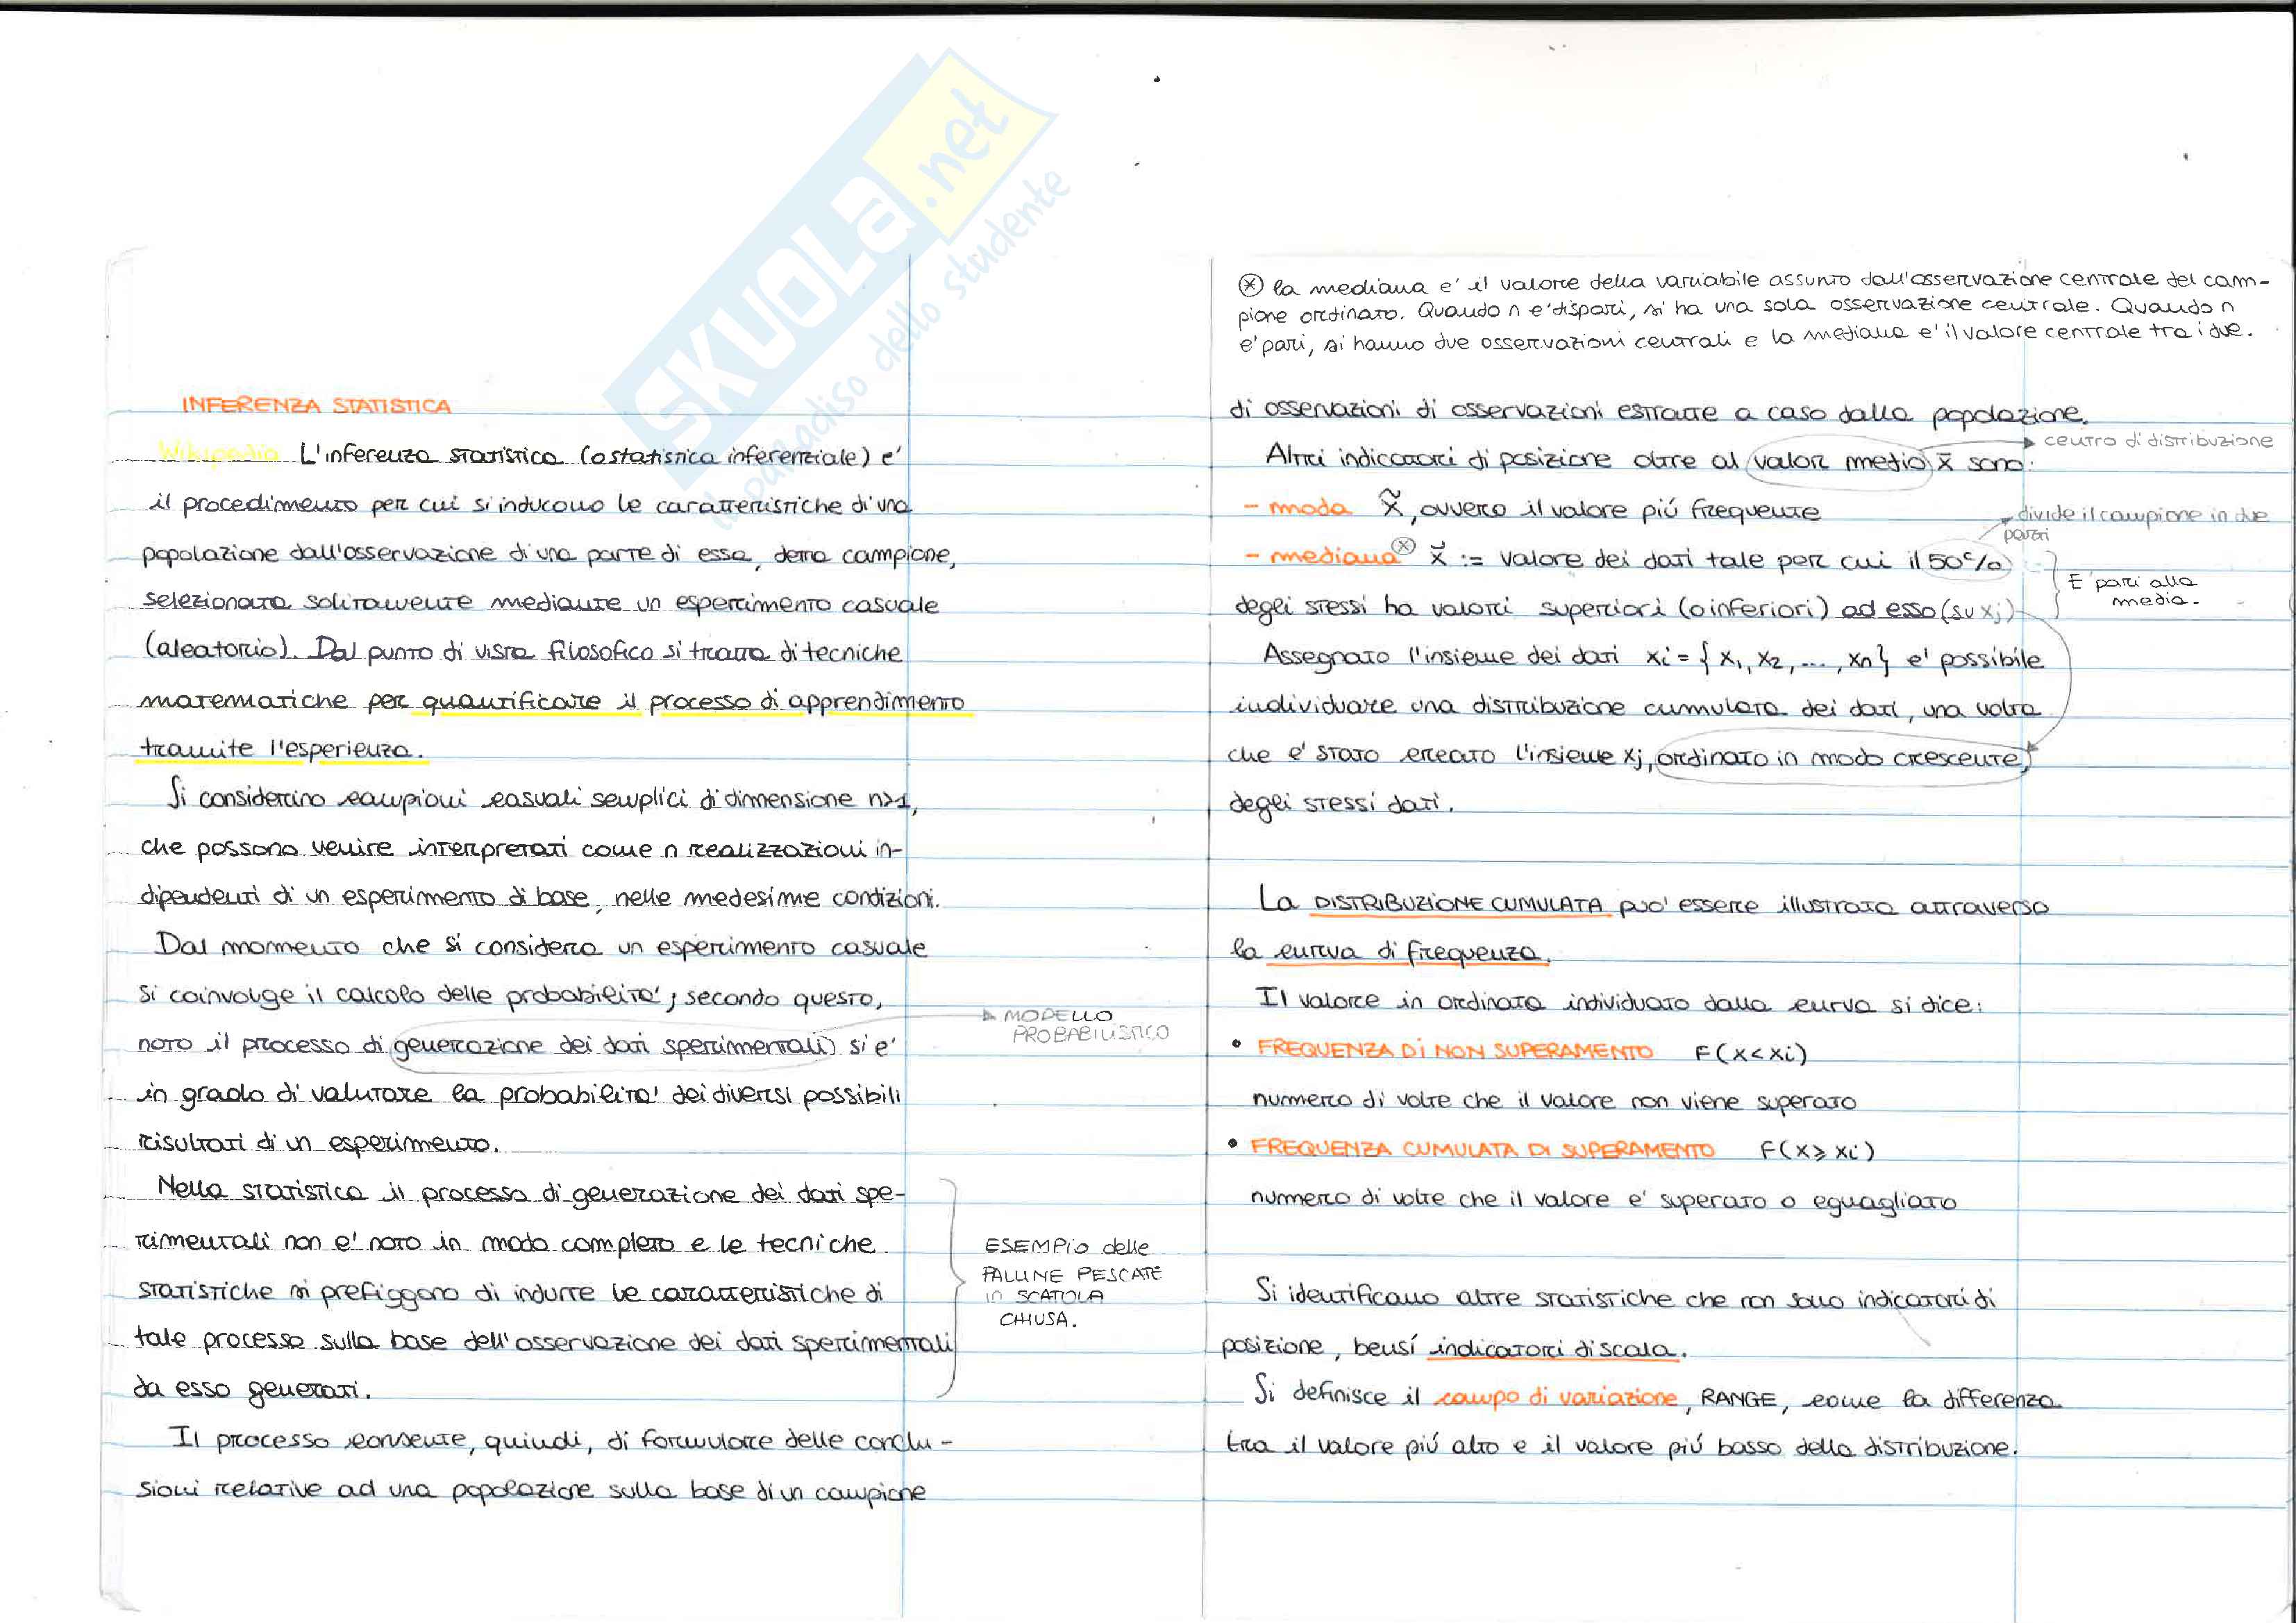 SKUOLA.net
il paradiso dello studente
INFERENZA STATISTICA
Wikipedia L'inferenza statistica (o statistica inferenziale) e'
il procedimento per cui si inducono le caratteristiche di una
popolazione dall'osservazione di una parte di essa, detta campione,
selezionata solitamente mediante un esperimento casuale
(aleatorio). Dal punto di vista filosofico si tratta di tecniche
matematiche per quantificare il processo di apprendimento
tramite l'esperienza.
Si considerino campioni casuali semplici di dimensione n>1,
che possono venire interpretati come n realizzazioni in-
dipendenti di un esperimento di base, nelle medesime condizioni.
Dal momento che si considera un esperimento casuale
si coinvolge il calcolo delle probabilita'; secondo questo,
noto il processo di generazione dei dati sperimentali si e'
MODELLO
PROBABILISTICO
in grado di valutare la probabilita' dei diversi possibili
risultati di un esperimento.
Nella statistica il processo di generazione dei dati spe-
rimentali non e' noto in modo completo e le tecniche
statistiche si prefiggono di indurre le caratteristiche di
tale processo sulla base dell'osservazione dei dati sperimentali
da esso generati.
ESEMPIO delle
PALLINE PESCATE
in SCATOLA
CHIUSA.
Il processo consente, quindi, di formulare delle conclu-
sioni relative ad una popolazione sulla base di un campione
⊛ la mediana e' il valore della variabile assunto dall'osservazione centrale del cam-
pione ordinato. Quando n e' dispari, si ha una sola osservazione centrale. Quando n
e' pari, si hanno due osservazioni centrali e la mediana e' il valore centrale tra i due.
di osservazioni di osservazioni estratte a caso dalla popolazione.
centro di distribuzione
Altri indicatori di posizione oltre al valor medio x̄ sono:
- moda x̃, ovvero il valore piú frequente
divide il campione in due
parti
- mediana⊛ x̌ := valore dei dati tale per cui il 50%
degli stessi ha valori superiori (o inferiori) ad esso (su xj)
E' pari alla
media.
Assegnato l'insieme dei dati xi = { x1, x2, ..., xn } e' possibile
individuare una distribuzione cumulata dei dati, una volta
che e' stato creato l'insieme xj, ordinato in modo crescente,
degli stessi dati.
La DISTRIBUZIONE CUMULATA puo' essere illustrata attraverso
la curva di frequenza.
Il valore in ordinata individuato dalla curva si dice:
• FREQUENZA DI NON SUPERAMENTO F(x<xi)
numero di volte che il valore non viene superato
• FREQUENZA CUMULATA DI SUPERAMENTO F(x⩾xi)
numero di volte che il valore e' superato o eguagliato
Si identificano altre statistiche che non sono indicatori di
posizione, bensí indicatori di scala.
Si definisce il campo di variazione, RANGE, come la differenza
tra il valore piú alto e il valore piú basso della distribuzione.